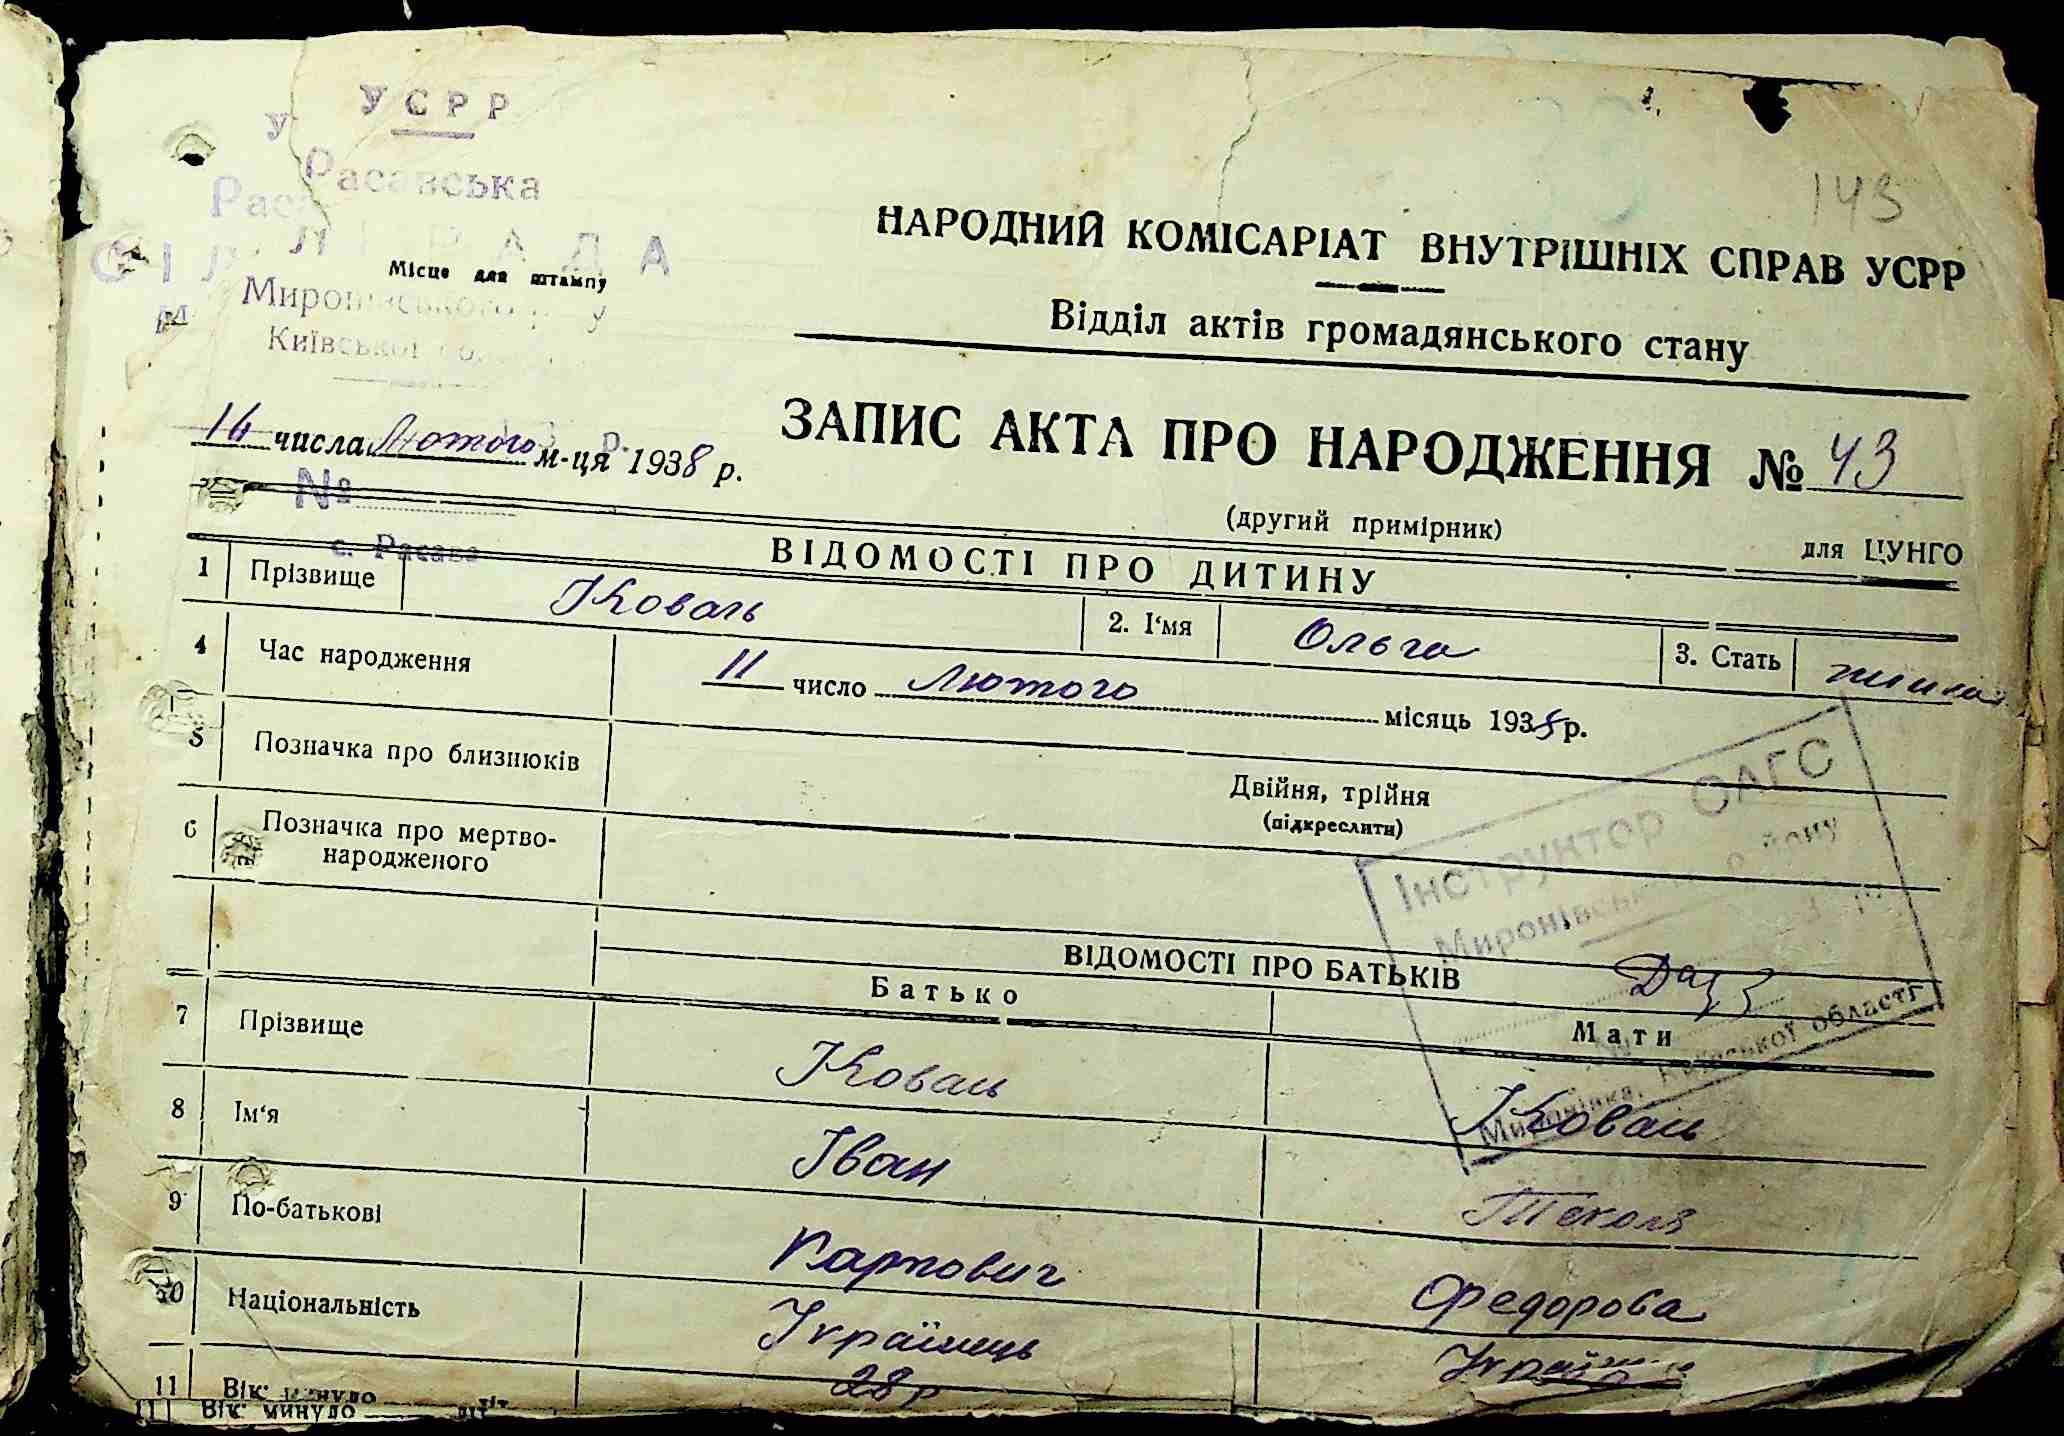 УСРР
Расавська
СІЛ РАДА
Місце для штампу
Миронівського
Київської
143
НАРОДНИЙ КОМІСАРІАТ ВНУТРІШНІХ СПРАВ УСРР
Відділ актів громадянського стану
16 числа Лютого м-ця 1938 р.
ЗАПИС АКТА ПРО НАРОДЖЕННЯ № 43
№
(другий примірник)
для ЦУНГО
с. Расава
ВІДОМОСТІ ПРО ДИТИНУ
1 Прізвище Коваль 2. І'мя Ольга 3. Стать
4 Час народження 11 число Лютого місяць 1938 р.
5 Позначка про близнюків Двійня, трійня
(підкреслити)
6 Позначка про мертво-
народженого
Інструктор ОАГС
Миронівськ району
Миронівка, Київської області
ВІДОМОСТІ ПРО БАТЬКІВ
Батько Мати
7 Прізвище Коваль Коваль
8 Ім'я Іван Текля
9 По-батькові Карпович Федорова
10 Національність Українець
11 Вік: минуло 28 р
11 Вік: минуло літ